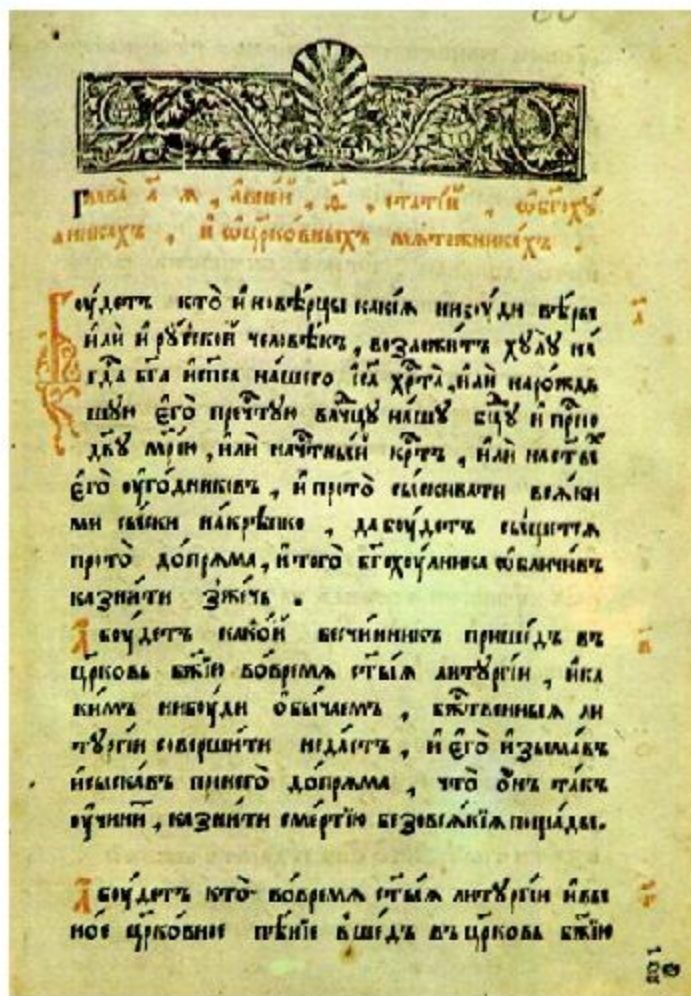 Глава̀ а҃ я , а в не́й , ѳ҃ , стате́й , ѡ бг҃оху́
лникахъ , и҆ ѡ цр҃ко́вныхъ мяте́жникахъ .
Боу́детъ кто̀ и҆новѣ́рцы какі́я нибоу́ди вѣ́ры
и҆лѝ и҆ ру́ской человѣ́къ , возложи́тъ хулу̀ на́
гд҃а бг҃а и҆ сп҃са на́шего і҆с҃а хрⷭ҇та̀ , и҆лѝ на ро́жд
шую є҆го̀ прч҃тую влⷣчцу на́шу бц҃у и҆ приⷭ҇но
дв҃у мр҃і́ю , и҆лѝ на чⷭ҇тны́й крⷭ҇тъ , и҆лѝ на ст҃ы́хъ
є҆го̀ оу҆го́дниковъ , и҆ про то̀ сы́скивати вся́ки
ми сы́ски на́крѣпко , да боу́детъ сы́щется
про то̀ до́пряма , и҆ того̀ бг҃охоу́лника ѡ҆бличи́въ
казни́ти зже́чь .
А боу́детъ како́й бесчи́нникъ прише́дъ въ
цр҃ковь бж҃ію во́ время ст҃ы́я литургі́и , и҆ ка
ки́мъ нибоу́ди ѻ҆бы́чаемъ , бжⷭ҇твенныя ли
тургі́и соверши́ти не да́стъ , и҆ є҆го̀ и҆зыма́въ
и҆ сыска́въ про него̀ до́пряма , что̀ ѻ҆́нъ та́къ
оу҆чини́тъ , казни́ти сме́ртію безо вся́кія поща́ды .
А боу́детъ кто̀ во́ время ст҃ы́я литургі́и и҆ в ы
но́е цр҃ко́вное пѣ́ніе вше́дъ въ цр҃ковь бж҃ію
а҃
в҃
г҃